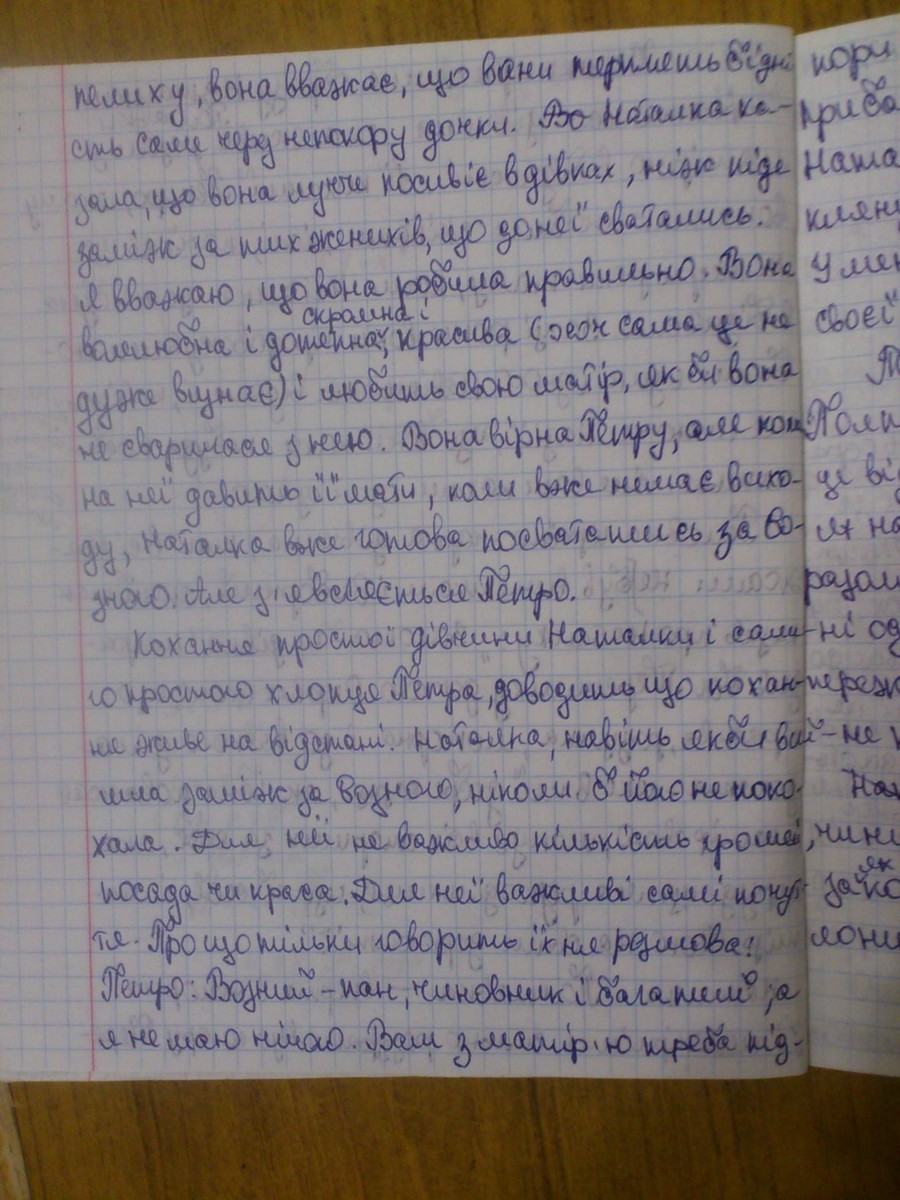 пелиху, вона вважає, що вани терплять бідні
сть саме через непокору дочки. Бо Наталка ка-
зала, що вона лучче посивіє в дівках, ніж піде
заміж за тих женихів, що до неї сватались.
Я вважаю, що вона робила правильно. Вона
скромна і
волелюбна і дотепна, красива (хоч сама це не
дуже визнає) і любить свою матір, як би вона
не сварилася з нею. Вона вірна Петру, але коли
на неї давить її мати, коли вже немає вихо-
ду, Наталка вже готова посвататись за Во-
зного. Але з'являється Петро.
Кохання простої дівчини Наталки і сами-
го простого хлопця Петра, доводить що кохан-
ня живе на відстані. Наталка, навіть якби вий-
шла заміж за Возного, ніколи б його не поко-
хала. Для неї не важливо кількість грошей,
посада чи краса. Для неї важливі самі почут-
тя. Про що тільки говорить їхня розмова:
Петро: Возний - пан, чиновник і багатий, а
я не маю нічого. Вам з матір'ю треба під-
пори
приба
Ната
кляну
У мен
своєї
Т
Полт
це від
ях на
разом
ні од
переж
не
На
чини
як
за ко